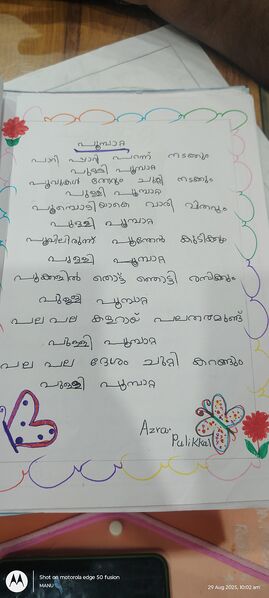 പൂമ്പാറ്റ
പാറി പാറി പറന്ന് നടക്കും
പുള്ളി പൂമ്പാറ്റ
പൂവുകൾ തോറും ചുറ്റി നടക്കും
പുള്ളി പൂമ്പാറ്റ
പൂമ്പൊടിയാകെ വാരി വിതറും
പുള്ളി പൂമ്പാറ്റ
പൂവിലിരുന്ന് പൂന്തേൻ കുടിക്കും
പുള്ളി പൂമ്പാറ്റ
പൂക്കളിൽ തൊട്ട് രസിക്കും
പുള്ളി പൂമ്പാറ്റ
പല പല
പുള്ളി പൂമ്പാറ്റ
പല പല ദേശം ചുറ്റി കറങ്ങും
പുള്ളി പൂമ്പാറ്റ
Azra
Palikkal
Shot on motorola edge 50 fusion
MANU
29 Aug 2025, 10:02 am